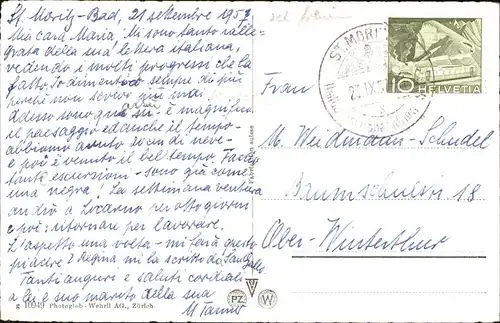 St. Moritz-Bad, 21 settembre 1957
Mia cara Maria! Mi sono tanto ralle-
grata della sua lettera italiana,
vedendo i molti progressi che ha
fatto. Io dimentico sempre di più
perchè non scrivo più mai
Adesso sono qui è magnifico
il paesaggio ed anche il tempo
abbiamo avuto 20cm di neve -
e poi è venuto il bel tempo. Faccio
tante escursioni - sono già come
una negra! La settimana ventura
andrò a Locarno per otto giorni
e poi: ritornare per lavorare.
L'aspetto una volta - mi farà questo
piacere? Regina mi ha scritto da San Gallo
Tanti auguri e saluti cordiali
a lei e suo marito della sua
M Tanner
g 10949 Photoglob-Wehrli AG., Zürich
ST. MORITZ
10 HELVETIA
Frau
M. Weidmann-Schudel
Baumschulstr. 18
Ober-Winterthur
PZ W